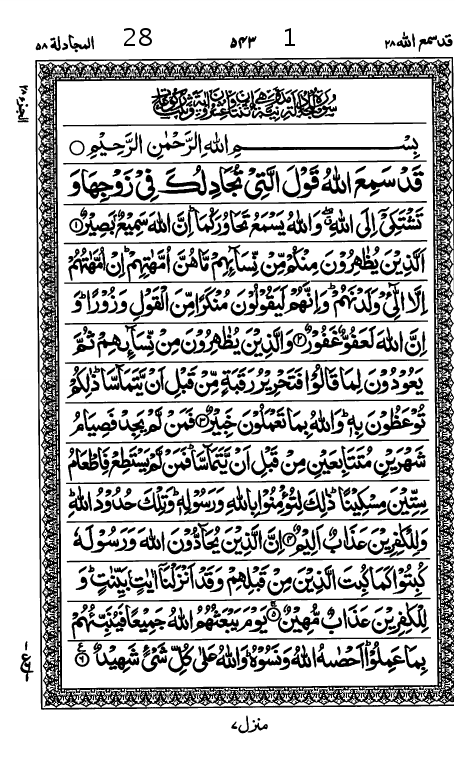 قد سمع الله ٢٨ 1 ٥٤٣ 28 المجادلة ٥٨
بِسْمِ اللهِ الرَّحْمٰنِ الرَّحِيْمِ ○
قَدْ سَمِعَ اللهُ قَوْلَ الَّتِيْ تُجَادِلُكَ فِيْ زَوْجِهَا وَ
تَشْتَكِيْٓ اِلَى اللهِ ۖ وَاللهُ يَسْمَعُ تَحَاوُرَكُمَا ؕ اِنَّ اللهَ سَمِيْعٌۢ بَصِيْرٌ ﴿۱﴾
اَلَّذِيْنَ يُظٰهِرُوْنَ مِنْكُمْ مِّنْ نِّسَآئِهِمْ مَّا هُنَّ اُمَّهٰتِهِمْ ؕ اِنْ اُمَّهٰتُهُمْ
اِلَّا الّٰٓـِٔيْ وَلَدْنَهُمْ ؕ وَاِنَّهُمْ لَيَقُوْلُوْنَ مُنْكَرًا مِّنَ الْقَوْلِ وَزُوْرًا ؕ وَ
اِنَّ اللهَ لَعَفُوٌّ غَفُوْرٌ ﴿۲﴾ وَالَّذِيْنَ يُظٰهِرُوْنَ مِنْ نِّسَآئِهِمْ ثُمَّ
يَعُوْدُوْنَ لِمَا قَالُوْا فَتَحْرِيْرُ رَقَبَةٍ مِّنْ قَبْلِ اَنْ يَّتَمَآسَّا ؕ ذٰلِكُمْ
تُوْعَظُوْنَ بِهٖ ؕ وَاللهُ بِمَا تَعْمَلُوْنَ خَبِيْرٌ ﴿۳﴾ فَمَنْ لَّمْ يَجِدْ فَصِيَامُ
شَهْرَيْنِ مُتَتَابِعَيْنِ مِنْ قَبْلِ اَنْ يَّتَمَآسَّا ۚ فَمَنْ لَّمْ يَسْتَطِعْ فَاِطْعَامُ
سِتِّيْنَ مِسْكِيْنًا ؕ ذٰلِكَ لِتُؤْمِنُوْا بِاللهِ وَرَسُوْلِهٖ ؕ وَتِلْكَ حُدُوْدُ اللهِ ؕ
وَلِلْكٰفِرِيْنَ عَذَابٌ اَلِيْمٌ ﴿۴﴾ اِنَّ الَّذِيْنَ يُحَآدُّوْنَ اللهَ وَرَسُوْلَهٗ
كُبِتُوْا كَمَا كُبِتَ الَّذِيْنَ مِنْ قَبْلِهِمْ وَقَدْ اَنْزَلْنَآ اٰيٰتٍۢ بَيِّنٰتٍ ؕ وَ
لِلْكٰفِرِيْنَ عَذَابٌ مُّهِيْنٌ ﴿۵﴾ يَوْمَ يَبْعَثُهُمُ اللهُ جَمِيْعًا فَيُنَبِّئُهُمْ
بِمَا عَمِلُوْا ؕ اَحْصٰىهُ اللهُ وَنَسُوْهُ ؕ وَاللهُ عَلٰى كُلِّ شَيْءٍ شَهِيْدٌ ﴿۶﴾
منزل ٧